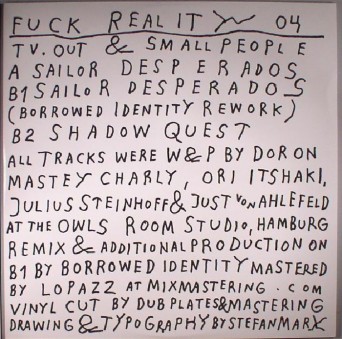 FUCK REALITY 04
TV. OUT & SMALL PEOPLE
A SAILOR DESPERADOS
B1 SAILOR DESPERADOS
(BORROWED IDENTITY REWORK)
B2 SHADOW QUEST
ALL TRACKS WERE W&P BY DORON
MASTEY CHARLY, ORI ITSHAKI,
JULIUS STEINHOFF & JUST VON AHLEFELD
AT THE OWLS ROOM STUDIO, HAMBURG
REMIX & ADDITIONAL PRODUCTION ON
B1 BY BORROWED IDENTITY MASTERED
BY LOPAZZ AT MIXMASTERING.COM
VINYL CUT BY DUBPLATES & MASTERING
DRAWING & TYPOGRAPHY BY STEFAN MARX